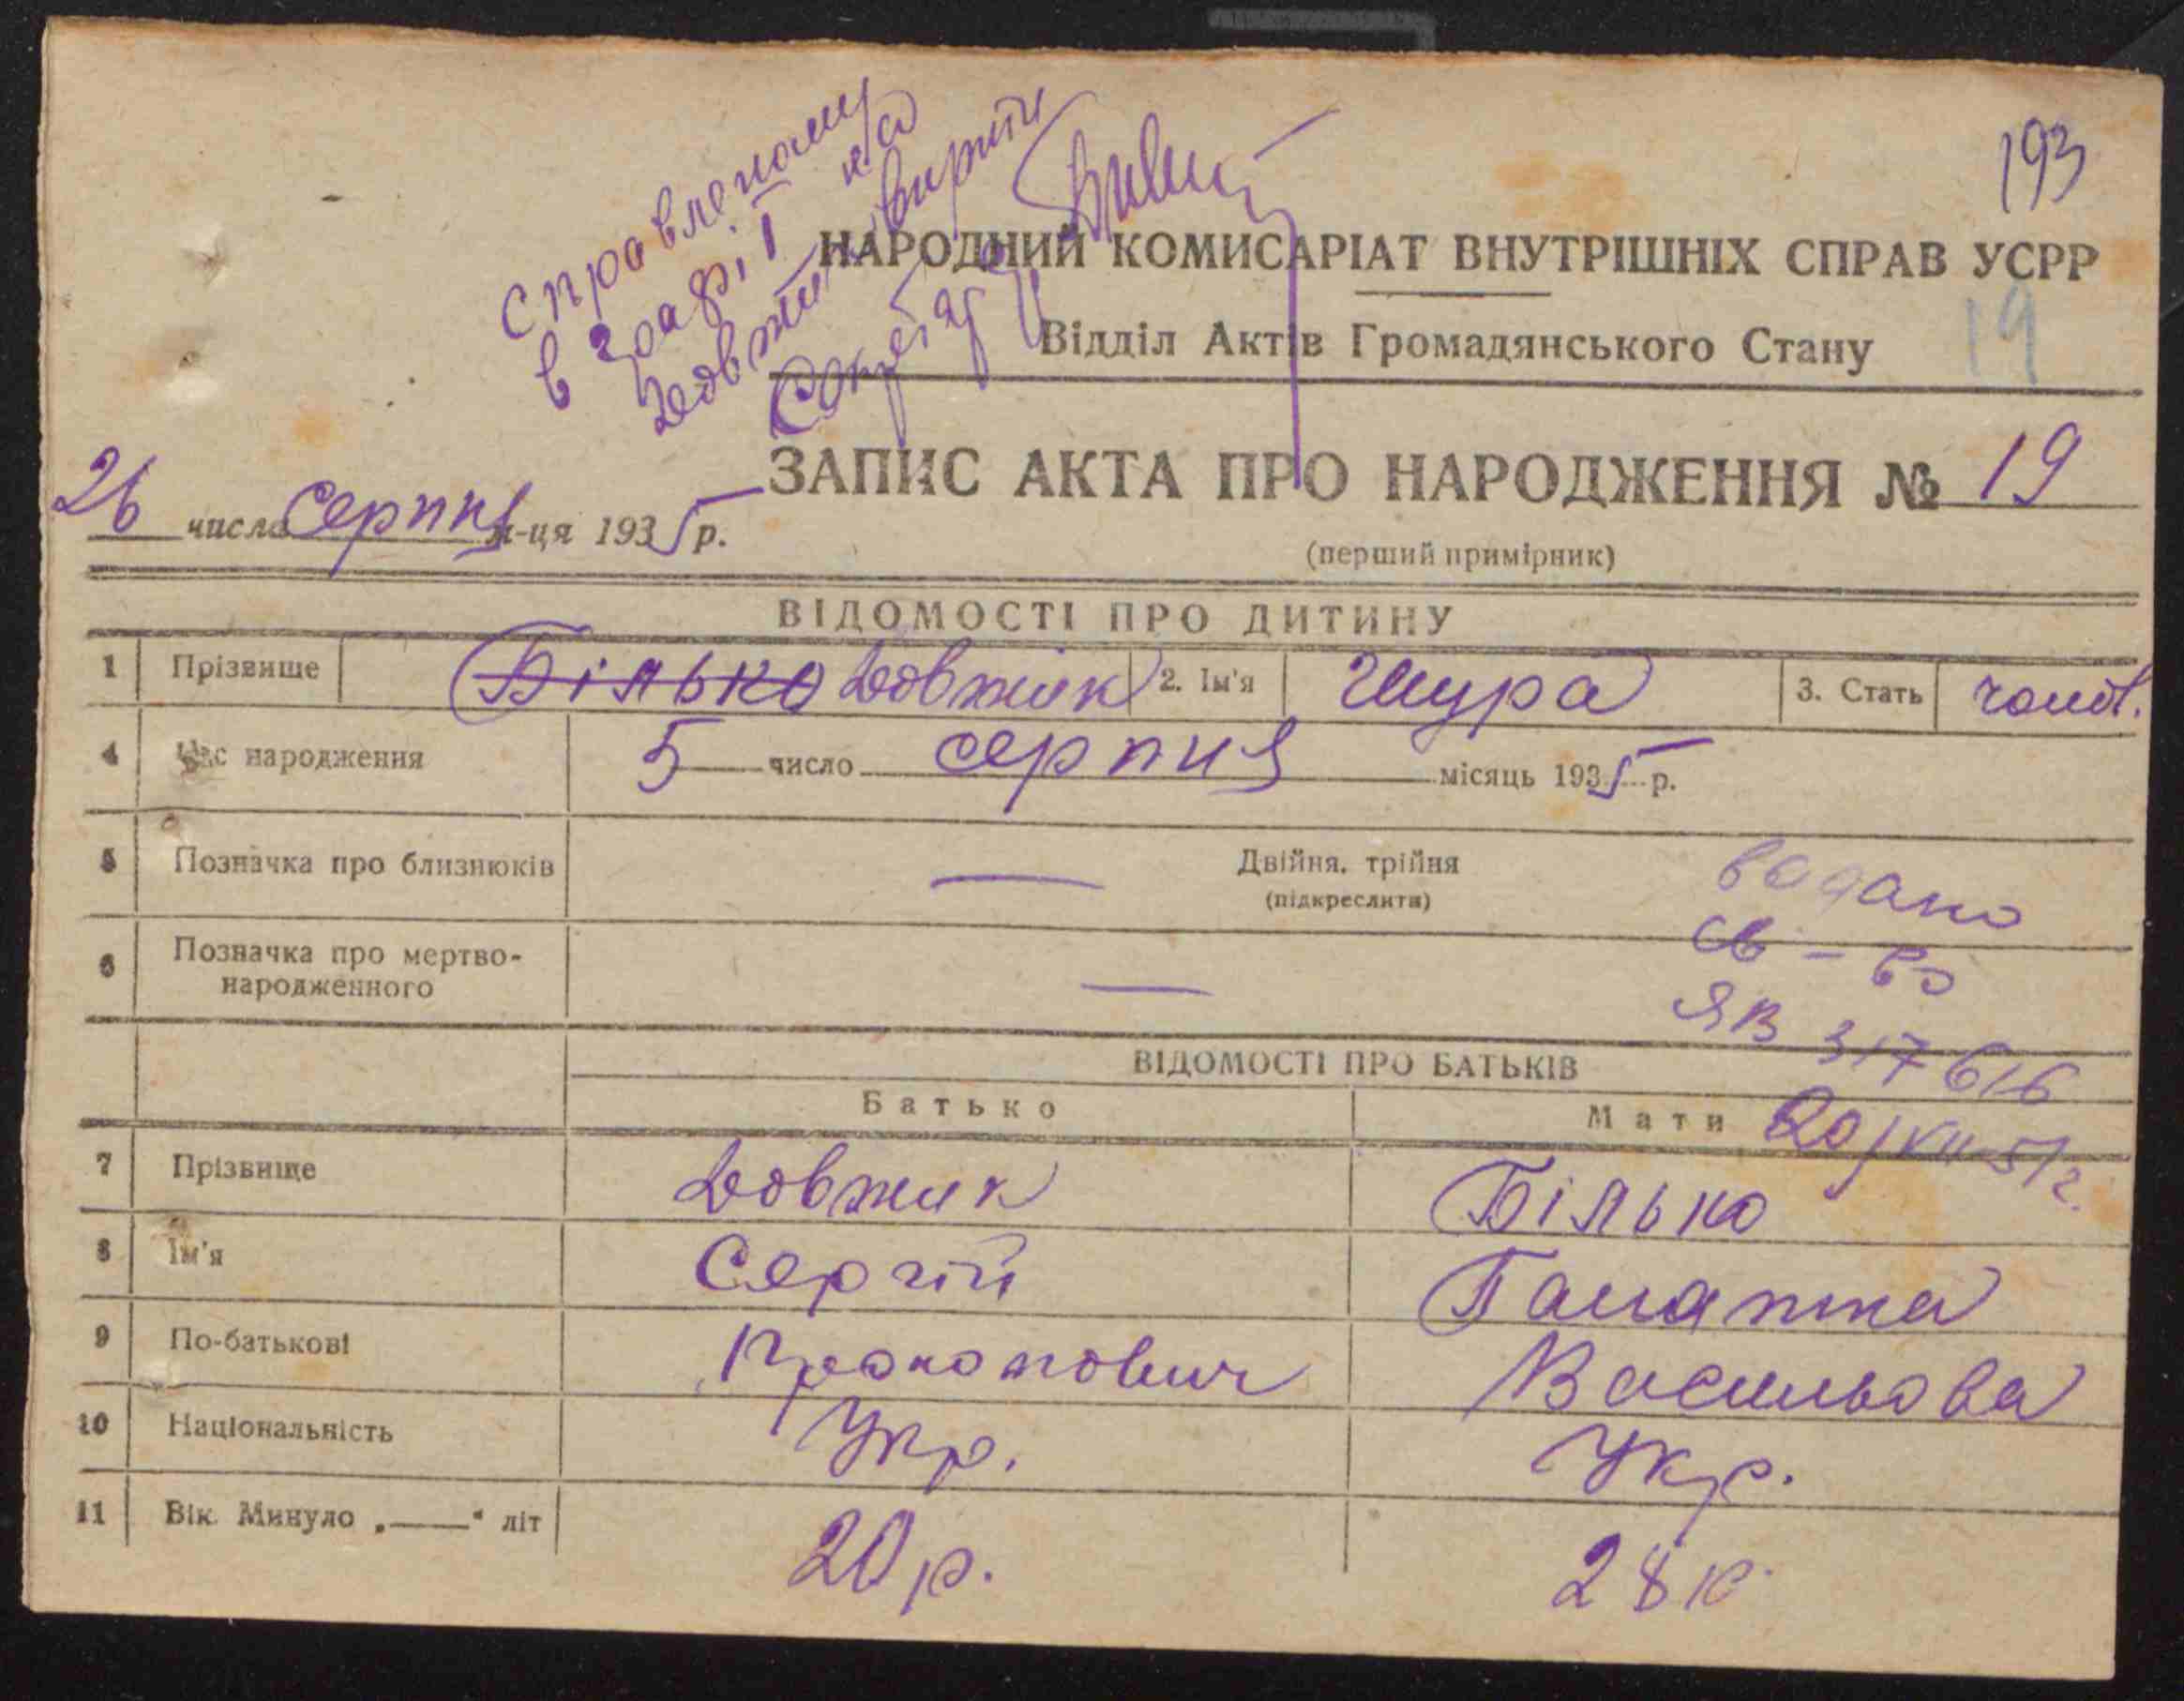 193
Справленому
в графі 1 на
Довжик вірити
НАРОДНИЙ КОМИСАРІАТ ВНУТРІШНІХ СПРАВ УСРР
Відділ Актів Громадянського Стану
19
ЗАПИС АКТА ПРО НАРОДЖЕННЯ № 19
26 число Серпня м-ця 1935 р.
(перший примірник)
ВІДОМОСТІ ПРО ДИТИНУ
1 Прізвище Білько Довжик 2. Ім'я Шура 3. Стать чолов.
4 Час народження 5 число серпня місяць 1935 р.
5 Позначка про близнюків — Двійня, трійня
(підкреслити)
видано
6 Позначка про мертво-
народженного —
св-во
ЯВ 317616
ВІДОМОСТІ ПРО БАТЬКІВ
Батько Мати
20/XII-51 г.
7 Прізвище Довжик Білько
8 Ім'я Сергій Палажка
9 По-батькові Прокопович Васильова
10 Національність Укр. Укр.
11 Вік. Минуло „——" літ 20 р. 28 р.